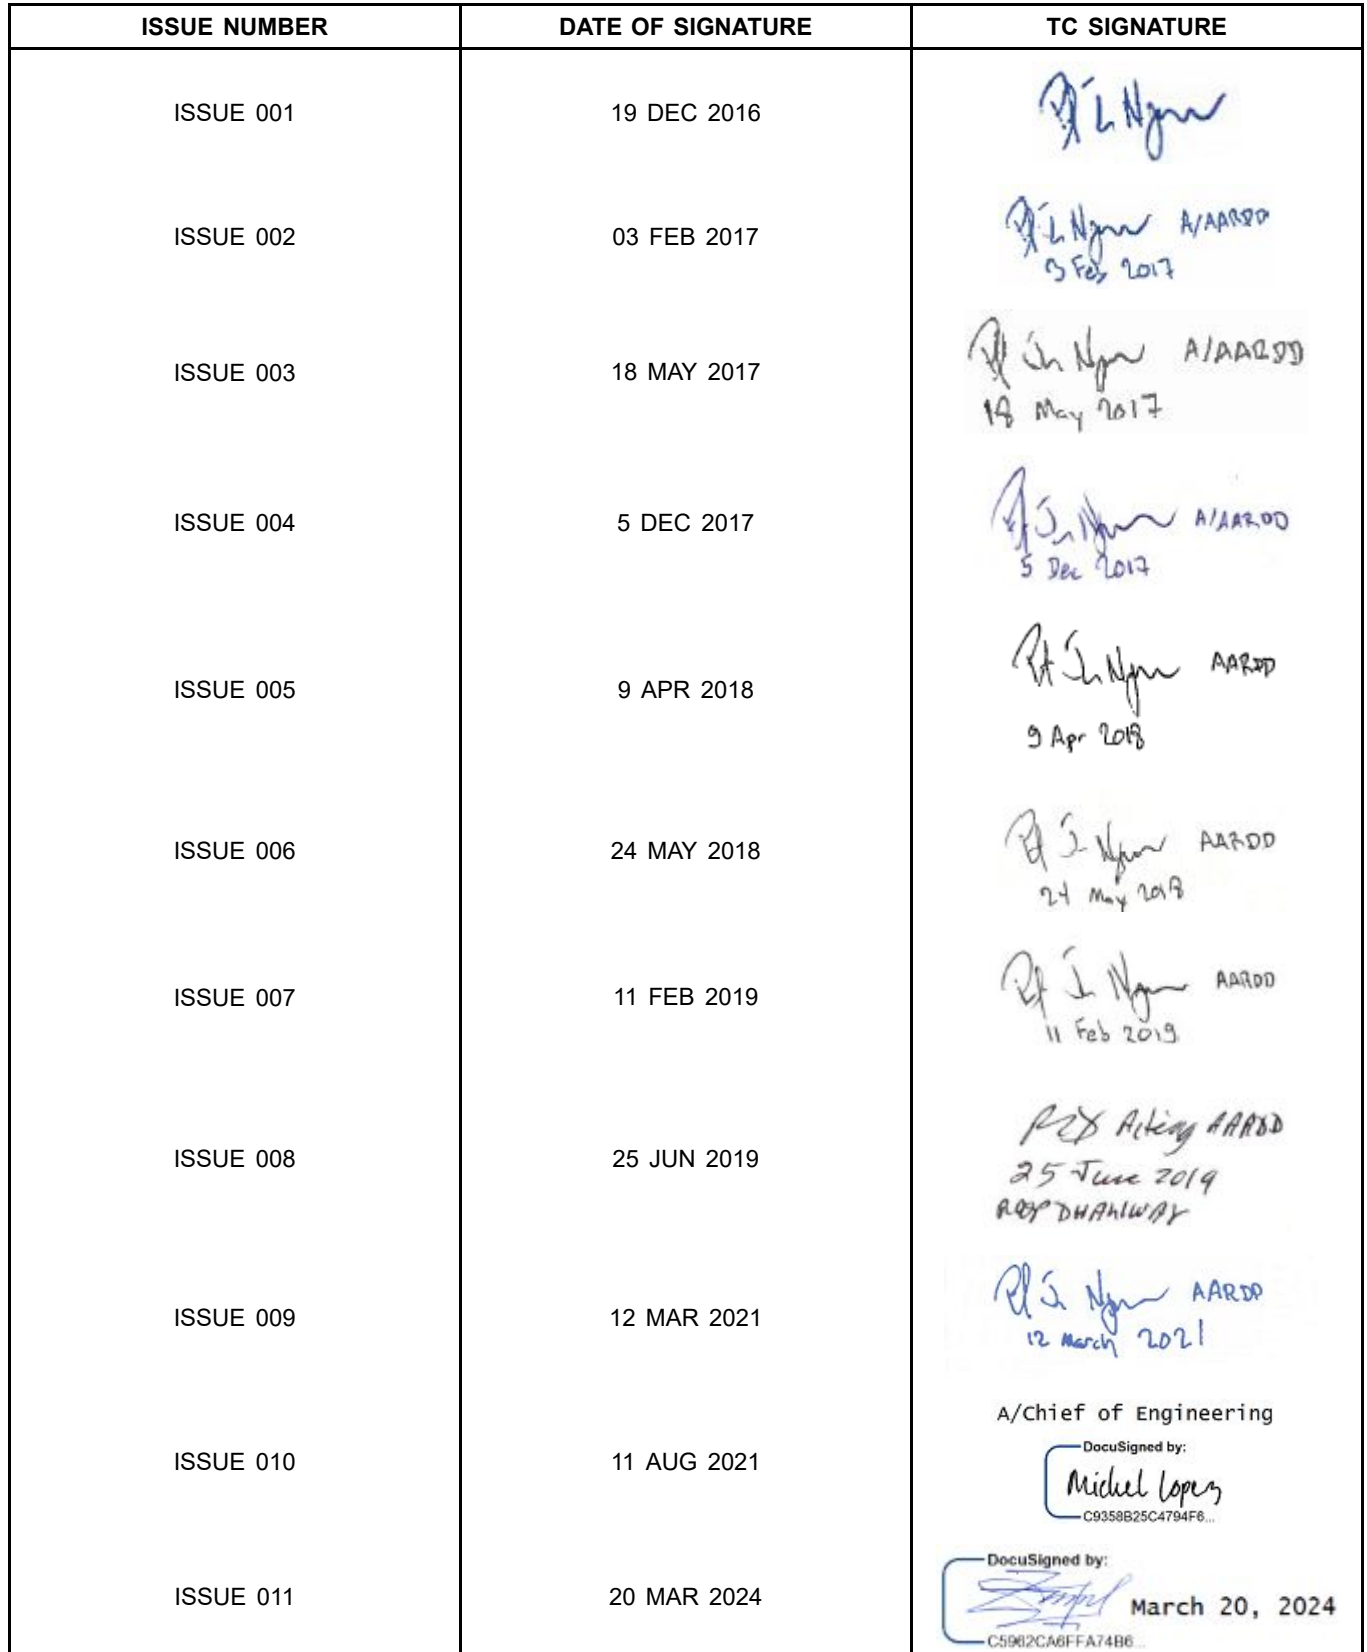 ISSUE NUMBER DATE OF SIGNATURE TC SIGNATURE
ISSUE 001 19 DEC 2016
ISSUE 002 03 FEB 2017 A/AARDD
3 Feb 2017
ISSUE 003 18 MAY 2017 A/AARDD
18 May 2017
ISSUE 004 5 DEC 2017 A/AARDD
5 Dec 2017
ISSUE 005 9 APR 2018 AARDD
9 Apr 2018
ISSUE 006 24 MAY 2018 AARDD
24 May 2018
ISSUE 007 11 FEB 2019 AARDD
11 Feb 2019
ISSUE 008 25 JUN 2019 Acting AARDD
25 June 2019
ISSUE 009 12 MAR 2021 AARDD
12 March 2021
A/Chief of Engineering
DocuSigned by:
ISSUE 010 11 AUG 2021 Michel Lopez
C9358B25C4794F6...
DocuSigned by:
ISSUE 011 20 MAR 2024 March 20, 2024
C5962CA6FFA74B6...